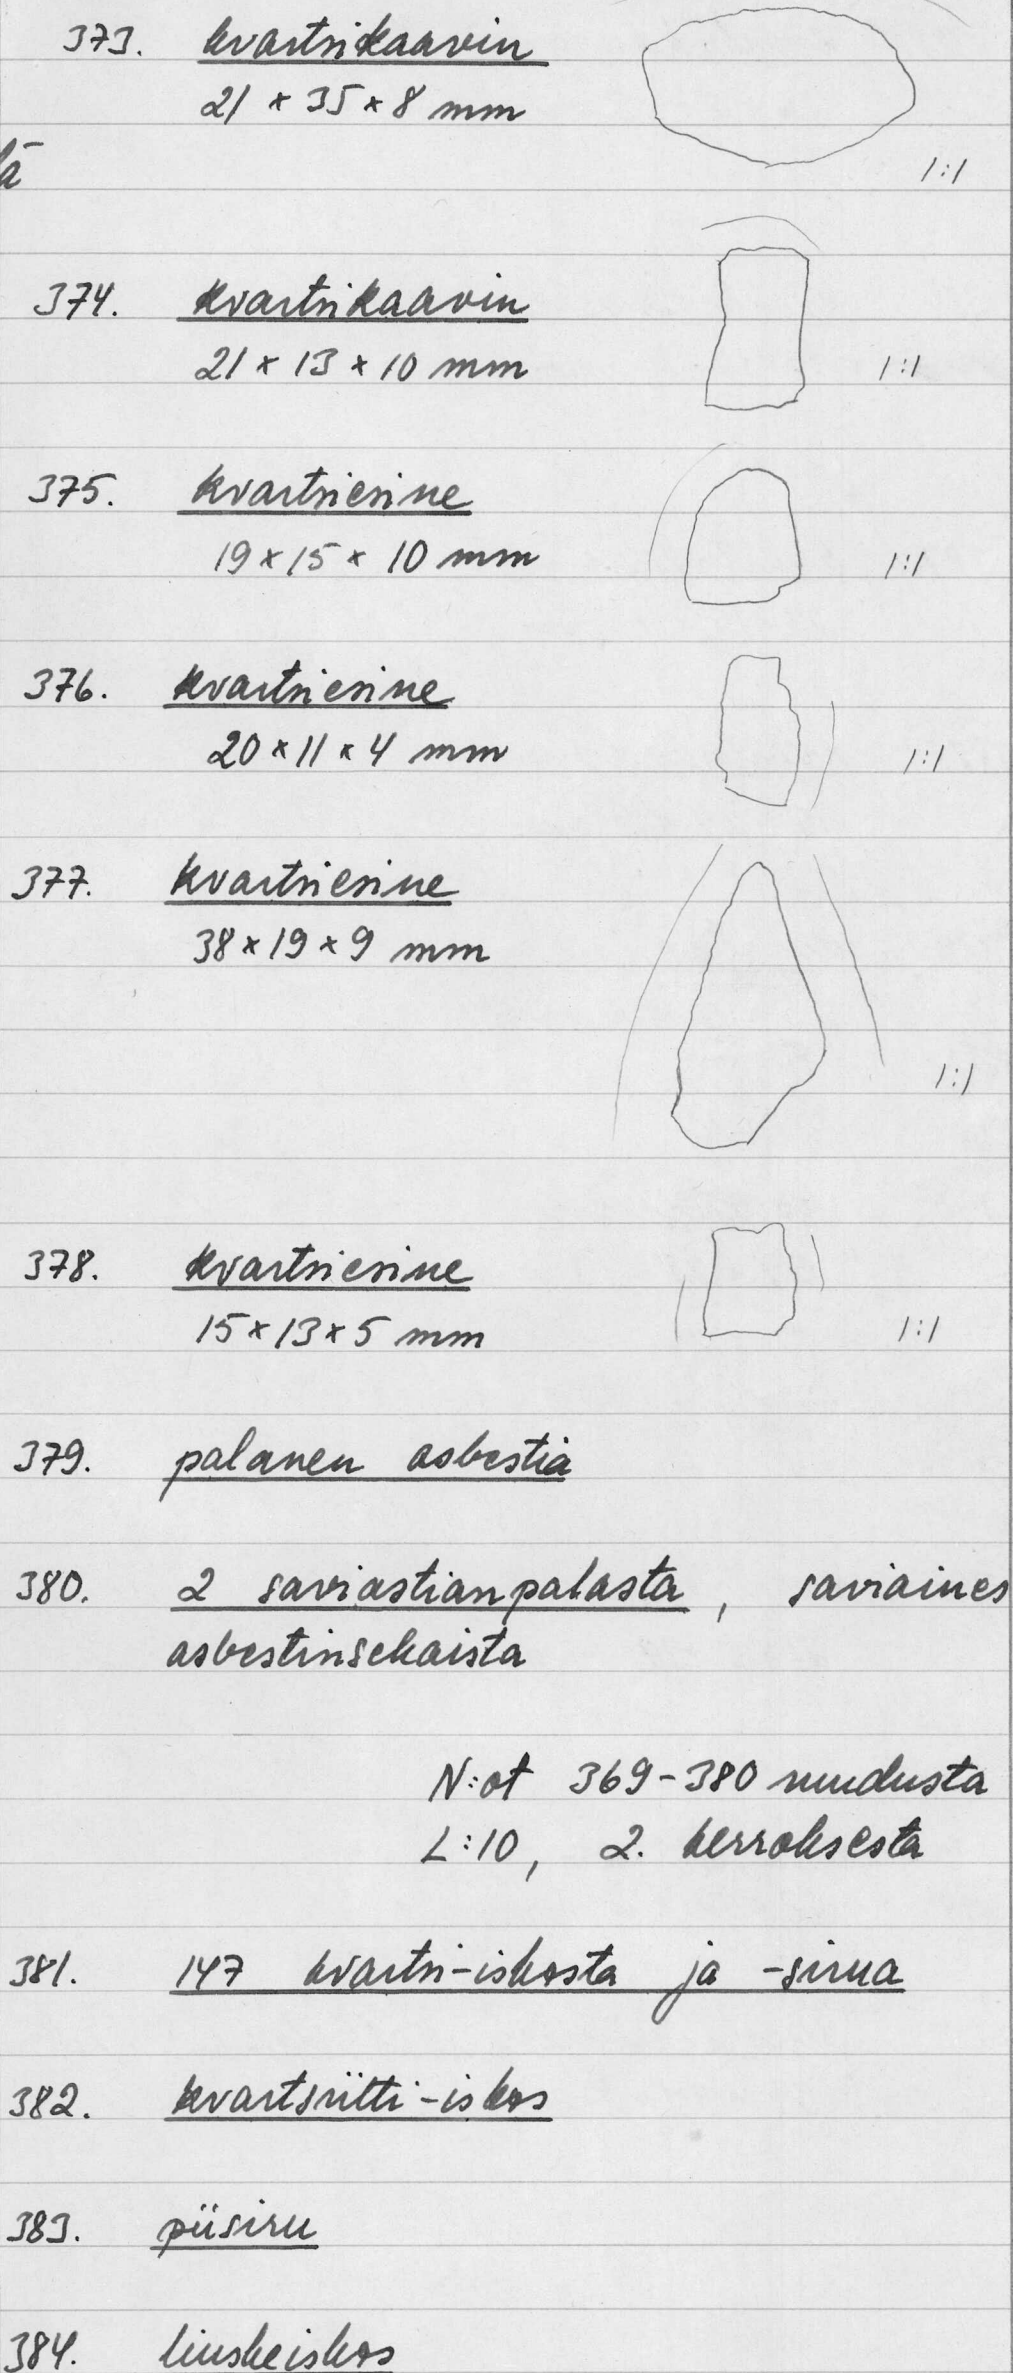 373. kvartsikaavin
21 × 35 × 8 mm
lä
1:1
374. kvartsikaavin
21 × 13 × 10 mm
1:1
375. kvartsiesine
19 × 15 × 10 mm
1:1
376. kvartsiesine
20 × 11 × 4 mm
1:1
377. kvartsiesine
38 × 19 × 9 mm
1:1
378. kvartsiesine
15 × 13 × 5 mm
1:1
379. palanen asbestia
380. 2 saviastianpalasta, saviaines
asbestinsekaista
N:ot 369-380 ruudusta
L:10, 2. kerroksesta
381. 147 kvartsi-iskosta ja -sirua
382. kvartsiitti-iskos
383. piisiru
384. liuskeiskos